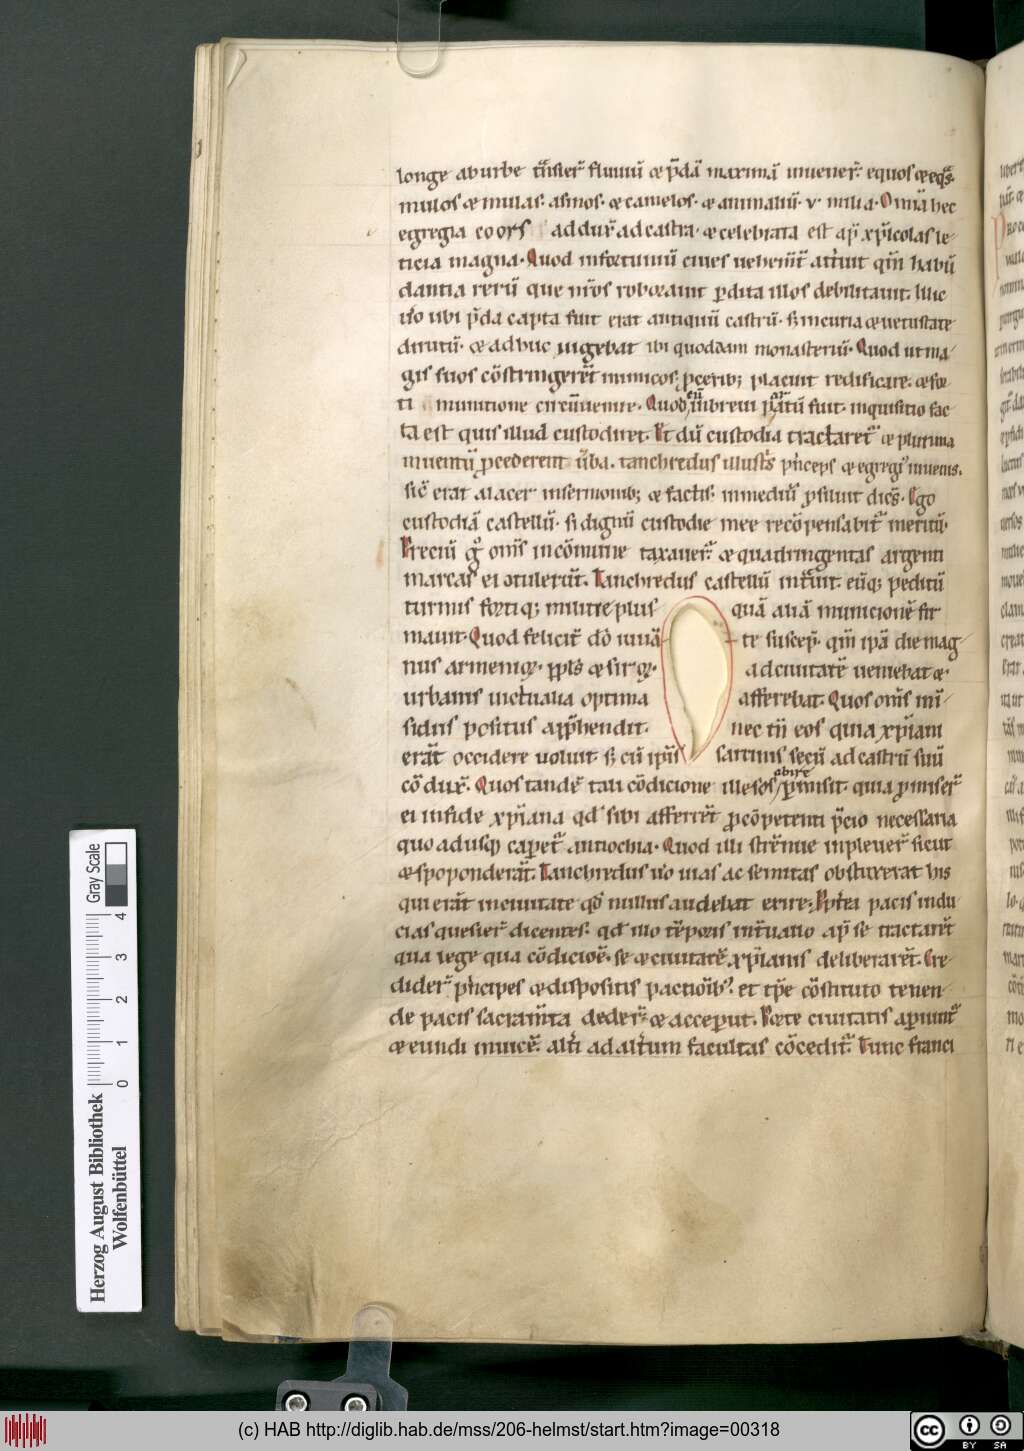 longe ab urbe t̃nsier̃ fluuiũ & p̃dã maximã inuener̃ equos & eq̃s·
mulos & mulas· asinos· & camelos· & animaliũ· v· milia· Om̃ia hec
egregia cohors addux̃ ad castra· & celebrata est ap̃ xp̃icolas le-
ticia magna· Quod infortuniũ ciues uehem̃t̃ att̃uit qm̃ habũ
dantia rerũ que nr̃os roborauit p̱dita illos debilitauit. Illic
uo ubi p̃da capta fuit erat antiquũ castrũ· s; incuria & uetustate
dirutũ· & adhuc uigebat ibi quoddam monasteriũ· Quod ut ma-
gis suos cõstringeret̃ inimicos· p̱cerib; placuit redificare· & for-
ti munitione circũuenire· Quod cũ inbreui patratũ fuit· inquisitio fac-
ta est quis illud custodiret· Et dũ custodia tractaret̃ & plurima
inuentũ p̱cederent ũba· tanchredus illust̃s p̃nceps & egregi' iuuenis·
sic̃ erat alacer in sermonib; & factis· in mediũ p̱siluit dicẽs· Ego
custodiã castellũ· si dignũ custodie mee recõpensabit̃ meritũ·
Preciũ g° om̃s in cõmune taxauer̃ & quadringentas argenti
marcas ei otulerũt· Tanchredus castellũ int̃uit· eũq; peditũ
turmis fortiq; militie plus quã aliã municionẽ fir
mauit· Quod felicit̃ dõ iuuã- te suscep̃· qm̃ ipã die mag-
nus armeniox̃· & sirox̃· ad ciuitatẽ ueniebat &
urbanis uictualia optima afferebat· Quos om̃s in ĩ-
sidiis positus app̃hendit· nec tñ eos quia xp̃iani
erãt occidere uoluit· s; cũ ip̃is sarcinis secũ ad castrũ suũ
cõdux̃· Quos tandẽ tali cõdicione illesos abire p̱misit· quia p̱miser̃
ei in fide xp̃iana qd̃ sibi afferrẽt p̱cõpetenti p̃cio necessaria
quo adusq; caperet̃ antiochia· Quod illi strẽnue inpleuer̃ sicut
& spoponderãt· Tanchredus uo uias ac semitas obstruxerat his
qui erãt in ciuitate qd̃ nullus audebat exire· pacis indu
cias quesier̃ dicentes· qd̃ illo tẽporis int̃uallo ap̃ se tractarẽt
qua lege qua cõdicioẽ· se & ciuitatẽ xp̃ianis deliberarẽt· Cre-
dider̃ p̃ncipes & dispositis pactiõib' et tp̃e cõstituto tenen-
de pacis sacram̃ta deder̃ & acceperũt· Porte ciuitatis aperiunt̃
& eundi inuicẽ· alt̃i ad alt̃um facultas cõcedit̃· Tunc franci
Herzog August Bibliothek
Wolfenbüttel
0 1 2 3 4
Gray Scale
(c) HAB http://diglib.hab.de/mss/206-helmst/start.htm?image=00318
cc BY SA